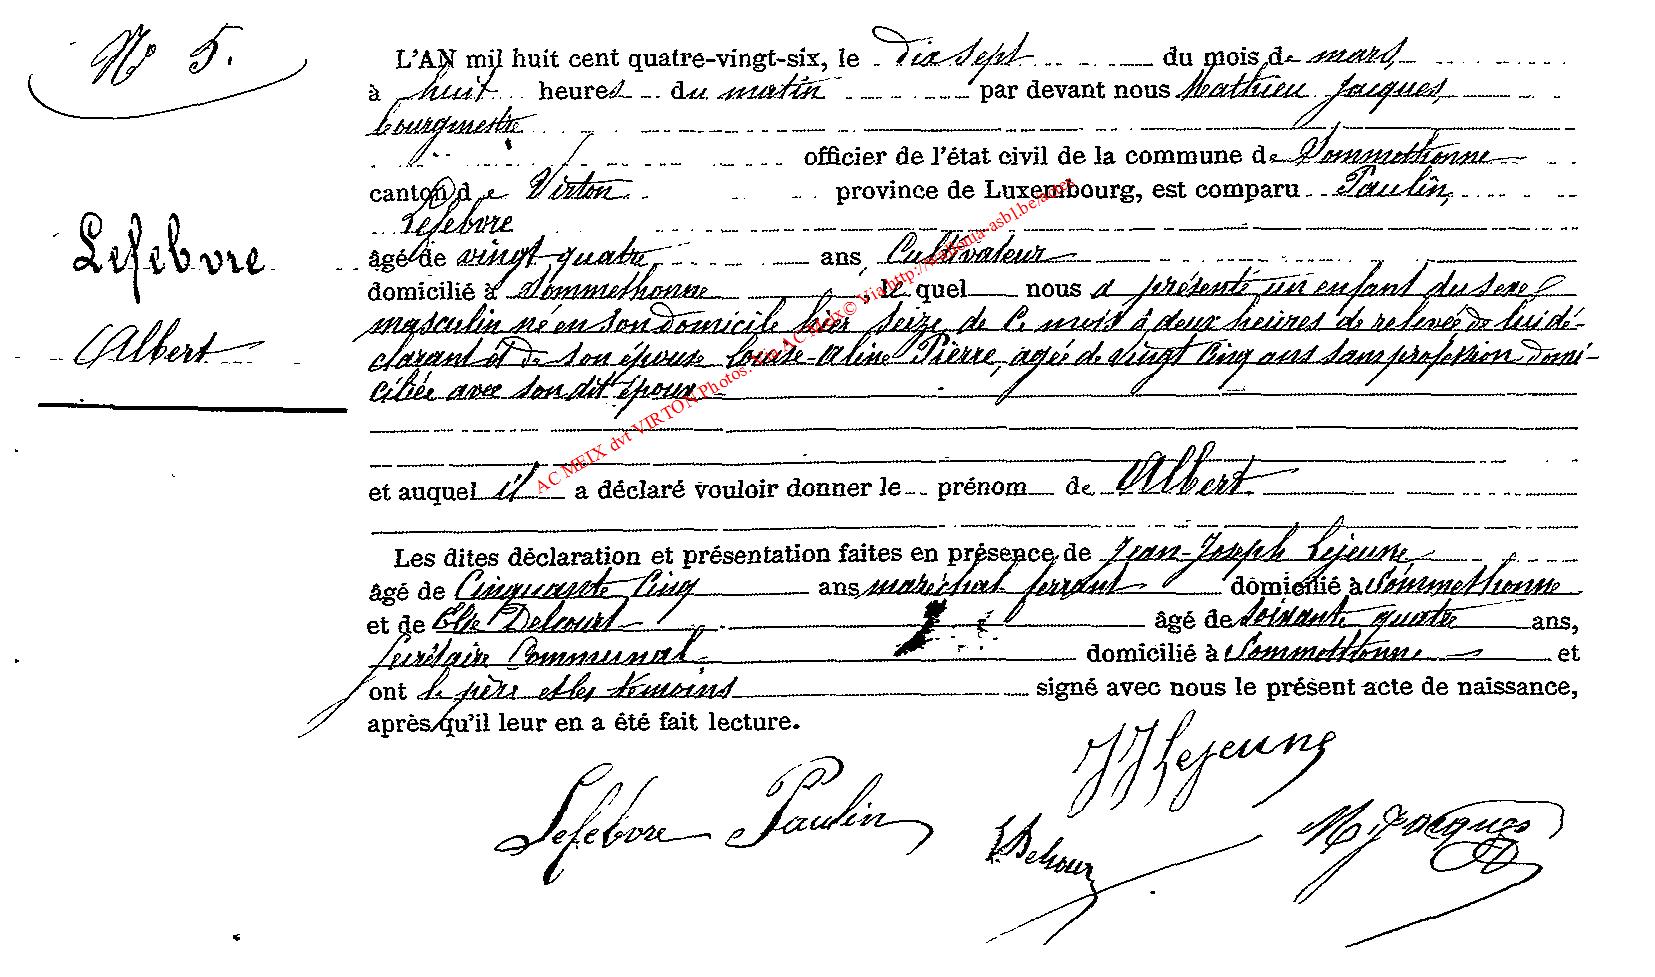 No 5.
L'AN mil huit cent quatre-vingt-six, le dix sept du mois de mars,
à huit heures du matin par devant nous Mathieu Jacques,
bourgmestre
officier de l'état civil de la commune de Sommethonne
canton de Virton province de Luxembourg, est comparu Paulin,
Lefebvre
Lefebvre
âgé de vingt quatre ans, Cultivateur
domicilié à Sommethonne le quel nous a présenté un enfant du sexe
masculin né en son domicile hier seize de ce mois à deux heures de relevée de lui dé-
clarant et de son épouse Louise Aline Pierre, agée de vingt cinq ans sans profession domi-
Albert
ciliée avec son dit époux
et auquel il a déclaré vouloir donner le prénom de Albert
Les dites déclaration et présentation faites en présence de Jean-Joseph Lejeune
âgé de Cinquante Cinq ans maréchal ferrant domicilié à Sommethonne
et de Elie Delcourt âgé de soixante quatre ans,
secrétaire Communal, domicilié à Sommethonne et
ont le père et les témoins signé avec nous le présent acte de naissance,
après qu'il leur en a été fait lecture.
JJ Lejeune
Lefebvre Paulin
M. Jacques
AC MEIX dvt VIRTON Photos: AC Meix© Via http://wallonia-asbl.be/actes